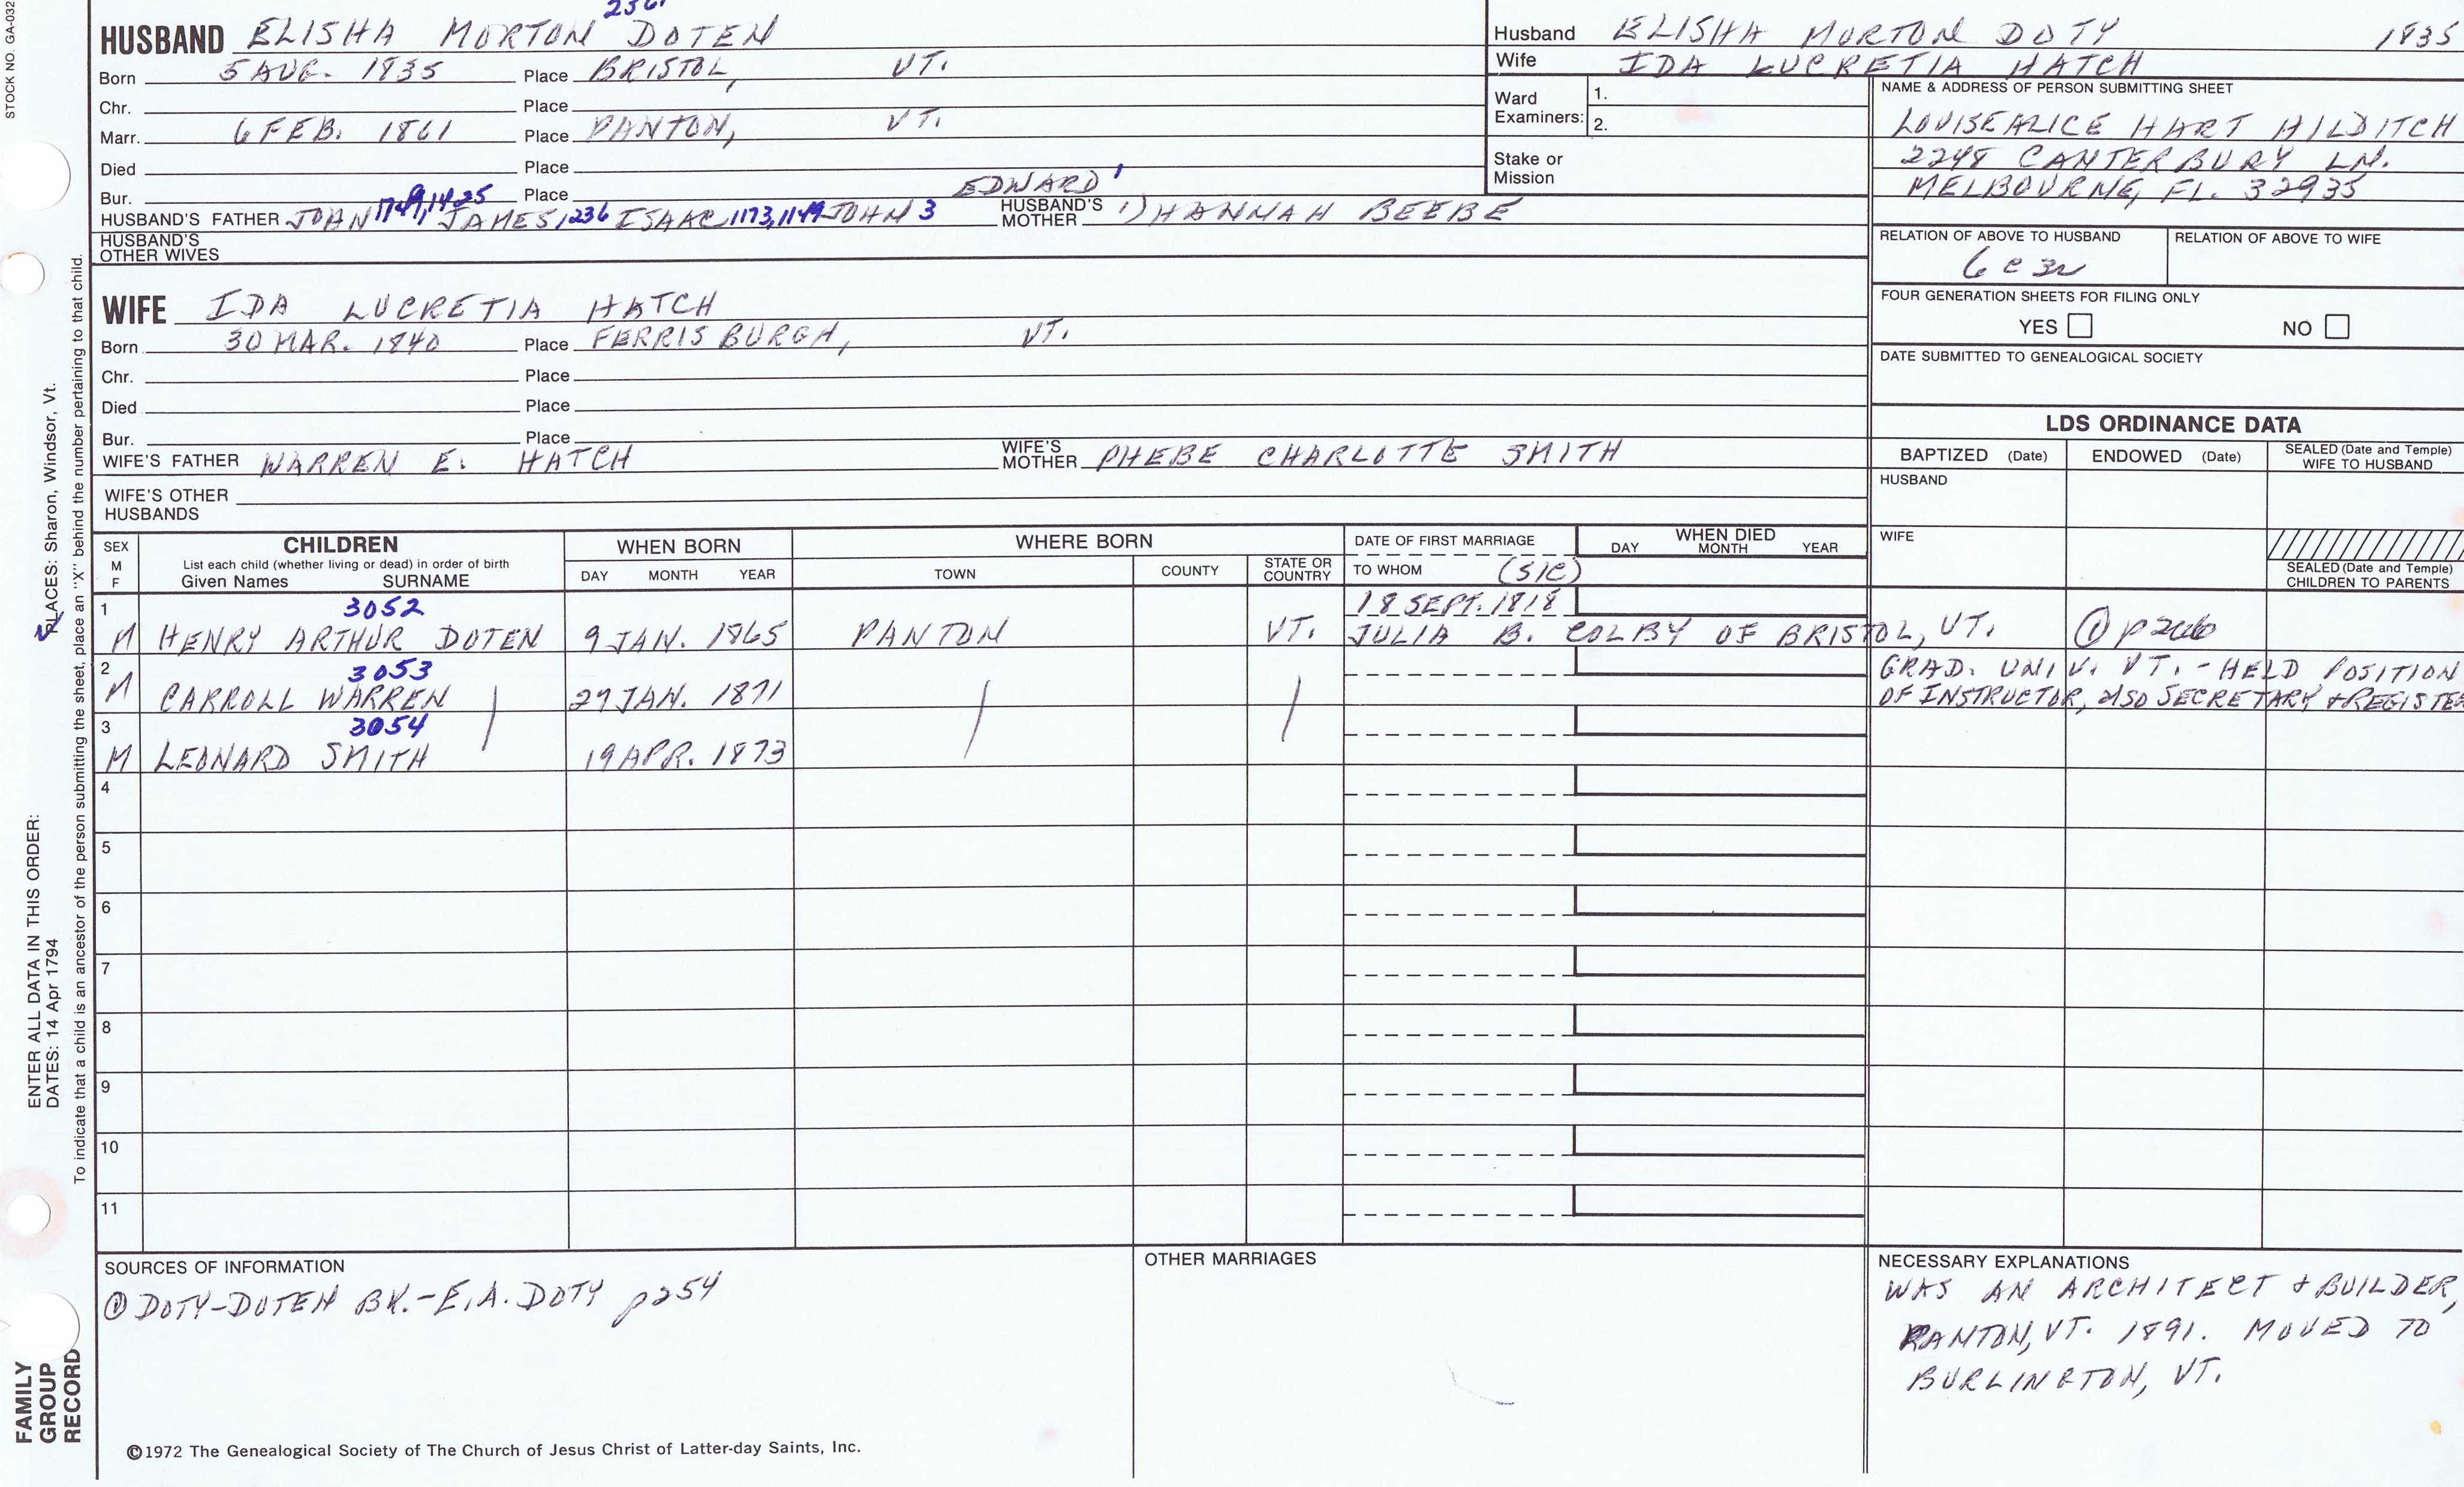 STOCK NO. GA-032
HUSBAND ELISHA MORTON DOTEN
Born 5 AUG. 1835 Place BRISTOL, VT.
Chr. Place
Marr. 6 FEB. 1861 Place PANTON, VT.
Died Place
Bur. Place
EDWARD 1
HUSBAND'S FATHER JOHN 1749, 1425 JAMES, 236 ISAAC, 1173, 1149 JOHN 3 HUSBAND'S MOTHER 1) HANNAH BEEBE
HUSBAND'S OTHER WIVES
WIFE IDA LUCRETIA HATCH
Born 30 MAR. 1840 Place FERRISBURGH, VT.
Chr. Place
Died Place
Bur. Place
WIFE'S FATHER WARREN E. HATCH WIFE'S MOTHER PHEBE CHARLOTTE SMITH
WIFE'S OTHER HUSBANDS
Husband ELISHA MORTON DOTY 1835
Wife IDA LUCRETIA HATCH
Ward Examiners: 1.
2.
Stake or Mission
NAME & ADDRESS OF PERSON SUBMITTING SHEET
LOUISEALICE HART HILDITCH
2248 CANTERBURY LN.
MELBOURNE, FL. 32935
RELATION OF ABOVE TO HUSBAND RELATION OF ABOVE TO WIFE
6 c 3r
FOUR GENERATION SHEETS FOR FILING ONLY
YES NO
DATE SUBMITTED TO GENEALOGICAL SOCIETY
LDS ORDINANCE DATA
BAPTIZED (Date) ENDOWED (Date) SEALED (Date and Temple) WIFE TO HUSBAND
HUSBAND
WIFE
SEALED (Date and Temple) CHILDREN TO PARENTS
SEX M F
CHILDREN
List each child (whether living or dead) in order of birth
Given Names SURNAME
WHEN BORN
DAY MONTH YEAR
WHERE BORN
TOWN COUNTY STATE OR COUNTRY
DATE OF FIRST MARRIAGE
TO WHOM (SIC)
WHEN DIED
DAY MONTH YEAR
1 3052 18 SEPT. 1818
M HENRY ARTHUR DOTEN 9 JAN. 1865 PANTON VT. JULIA B. COLBY OF BRISTOL, VT. ① p206
2 3053 GRAD. UNIV. VT. - HELD POSITION
M CARROLL WARREN 27 JAN. 1871 OF INSTRUCTOR, also SECRETARY & REGISTER
3 3054
M LEONARD SMITH 19 APR. 1873
4
5
6
7
8
9
10
11
SOURCES OF INFORMATION
① DOTY-DOTEN BK.-E.A. DOTY p254
OTHER MARRIAGES
NECESSARY EXPLANATIONS
WAS AN ARCHITECT & BUILDER,
PANTON, VT. 1891. MOVED TO
BURLINGTON, VT.
©1972 The Genealogical Society of The Church of Jesus Christ of Latter-day Saints, Inc.
FAMILY GROUP RECORD
ENTER ALL DATA IN THIS ORDER:
DATES: 14 Apr 1794
PLACES: Sharon, Windsor, Vt.
To indicate that a child is an ancestor of the person submitting the sheet, place an "X" behind the number pertaining to that child.